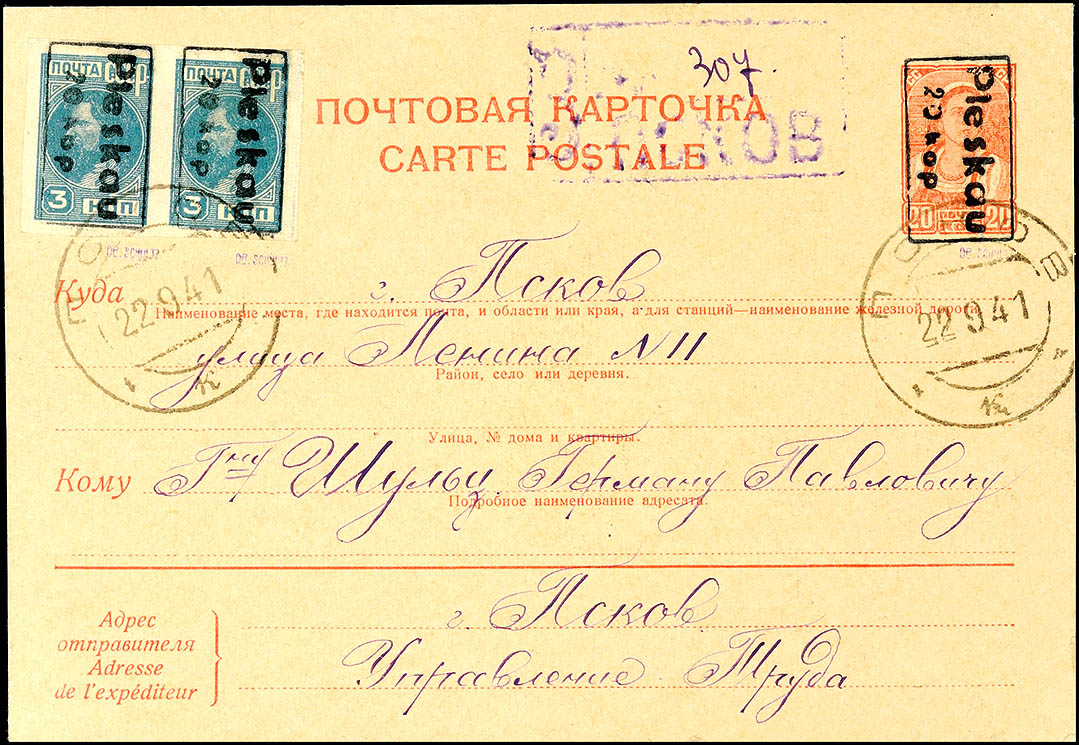 ПОЧТА СССР
3 КОП
pleskau
20 кор
ПОЧТА СССР
3 КОП
pleskau
20 кор
307
З. ПСКОВ
pleskau
20 кор
20
ПОЧТОВАЯ КАРТОЧКА
CARTE POSTALE
22 9 41
22 9 41
Куда г. Псков
Наименование места, где находится почта, и области или края, а для станций—наименование железной дороги.
улица Ленина N 11
Район, село или деревня.
Улица, № дома и квартиры.
Кому Г-ну Шульц Герману Павловичу
Подробное наименование адресата.
Адрес
отправителя
Adresse
de l'expéditeur
г. Псков
Управление Труда